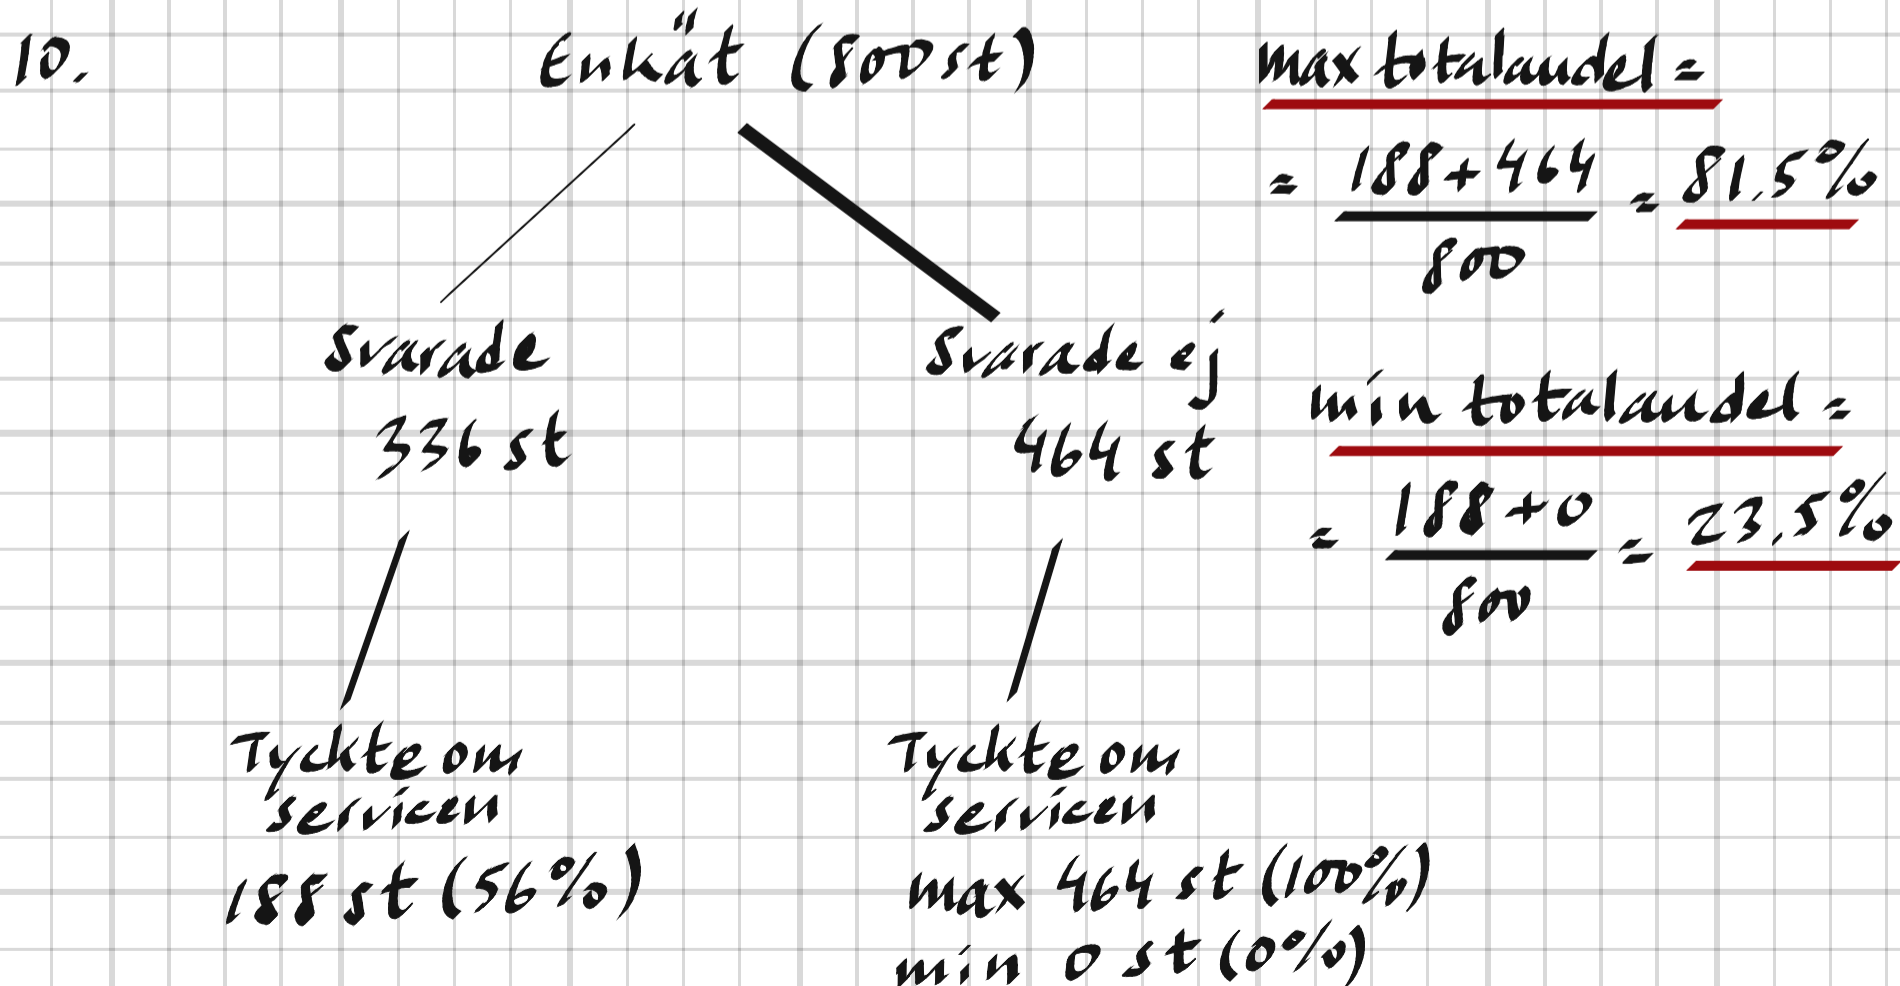 10.
Enkät (800 st)
Svarade
336 st
Svarade ej
464 st
Tyckte om
servicen
188 st (56%)
Tyckte om
servicen
max 464 st (100%)
min 0 st (0%)
max totalandel =
= 188+464 / 800 = 81,5%
min totalandel =
= 188+0 / 800 = 23,5%